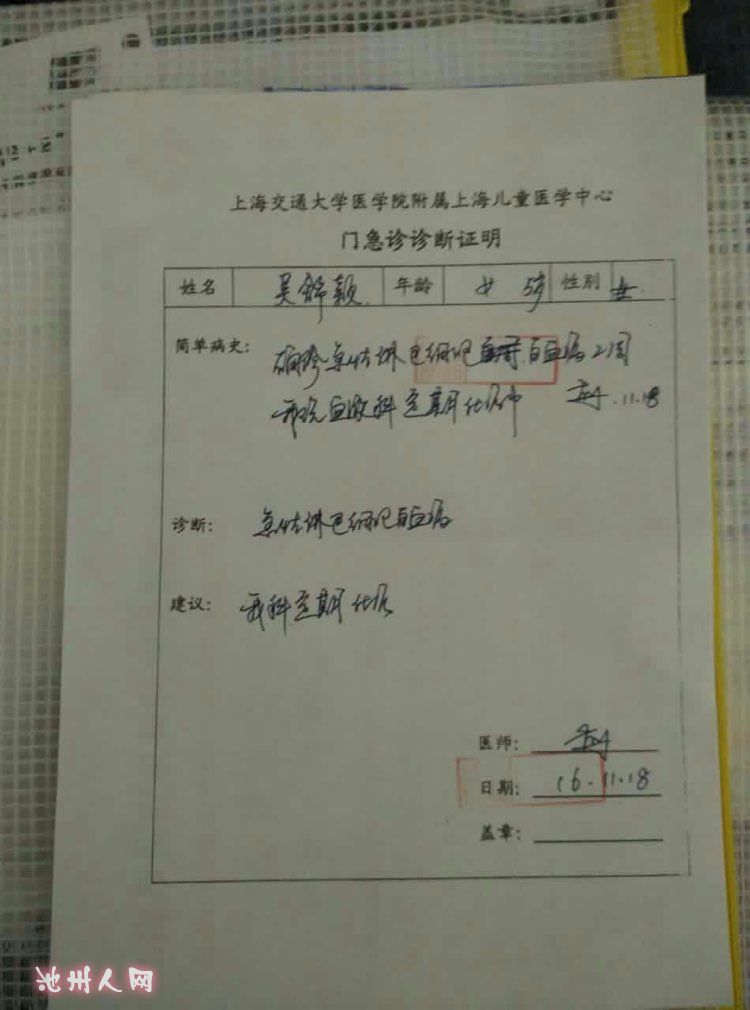 上海交通大学医学院附属上海儿童医学中心
门急诊诊断证明
姓名 吴锦颖 年龄 女 5岁 性别 女
简单病史： 确诊急性淋巴细胞 白血病2周
我院血液科定期化疗中 11.18
诊断： 急性淋巴细胞白血病
建议： 我科定期化疗
医师：
日期： 16.11.18
盖章：
池州人网